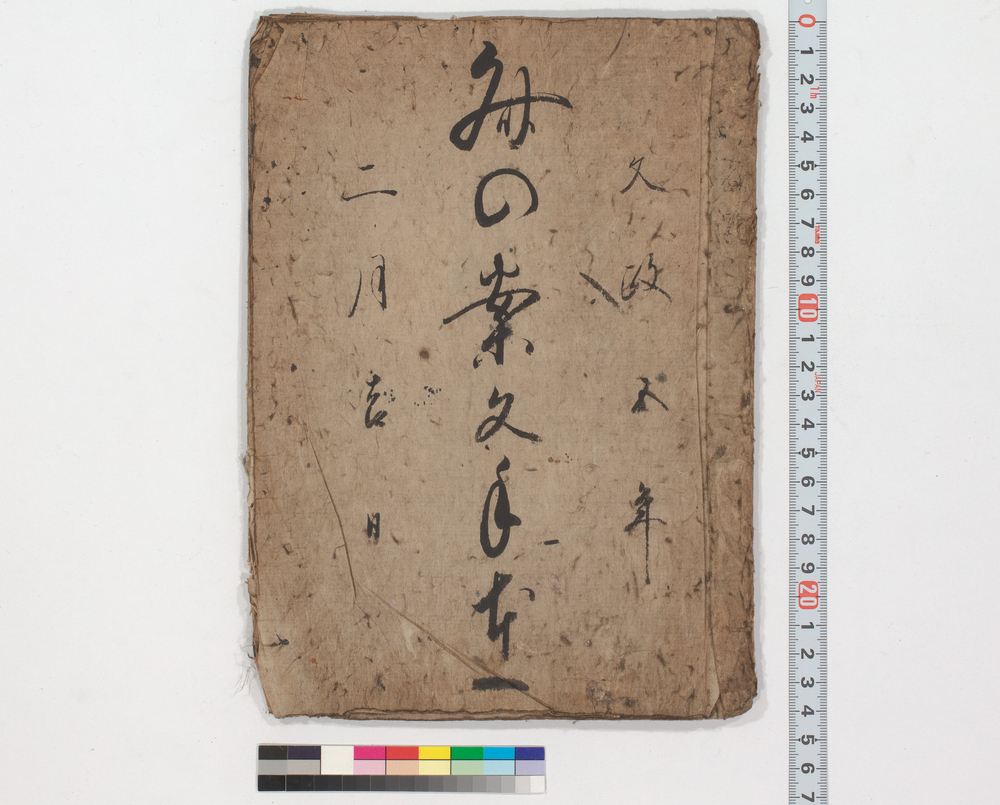 文政五年
の案文手本
二月吉日
0 1 2 3 4 5 6 7 8 9 10 1 2 3 4 5 6 7 8 9 20 1 2 3 4 5 6 7